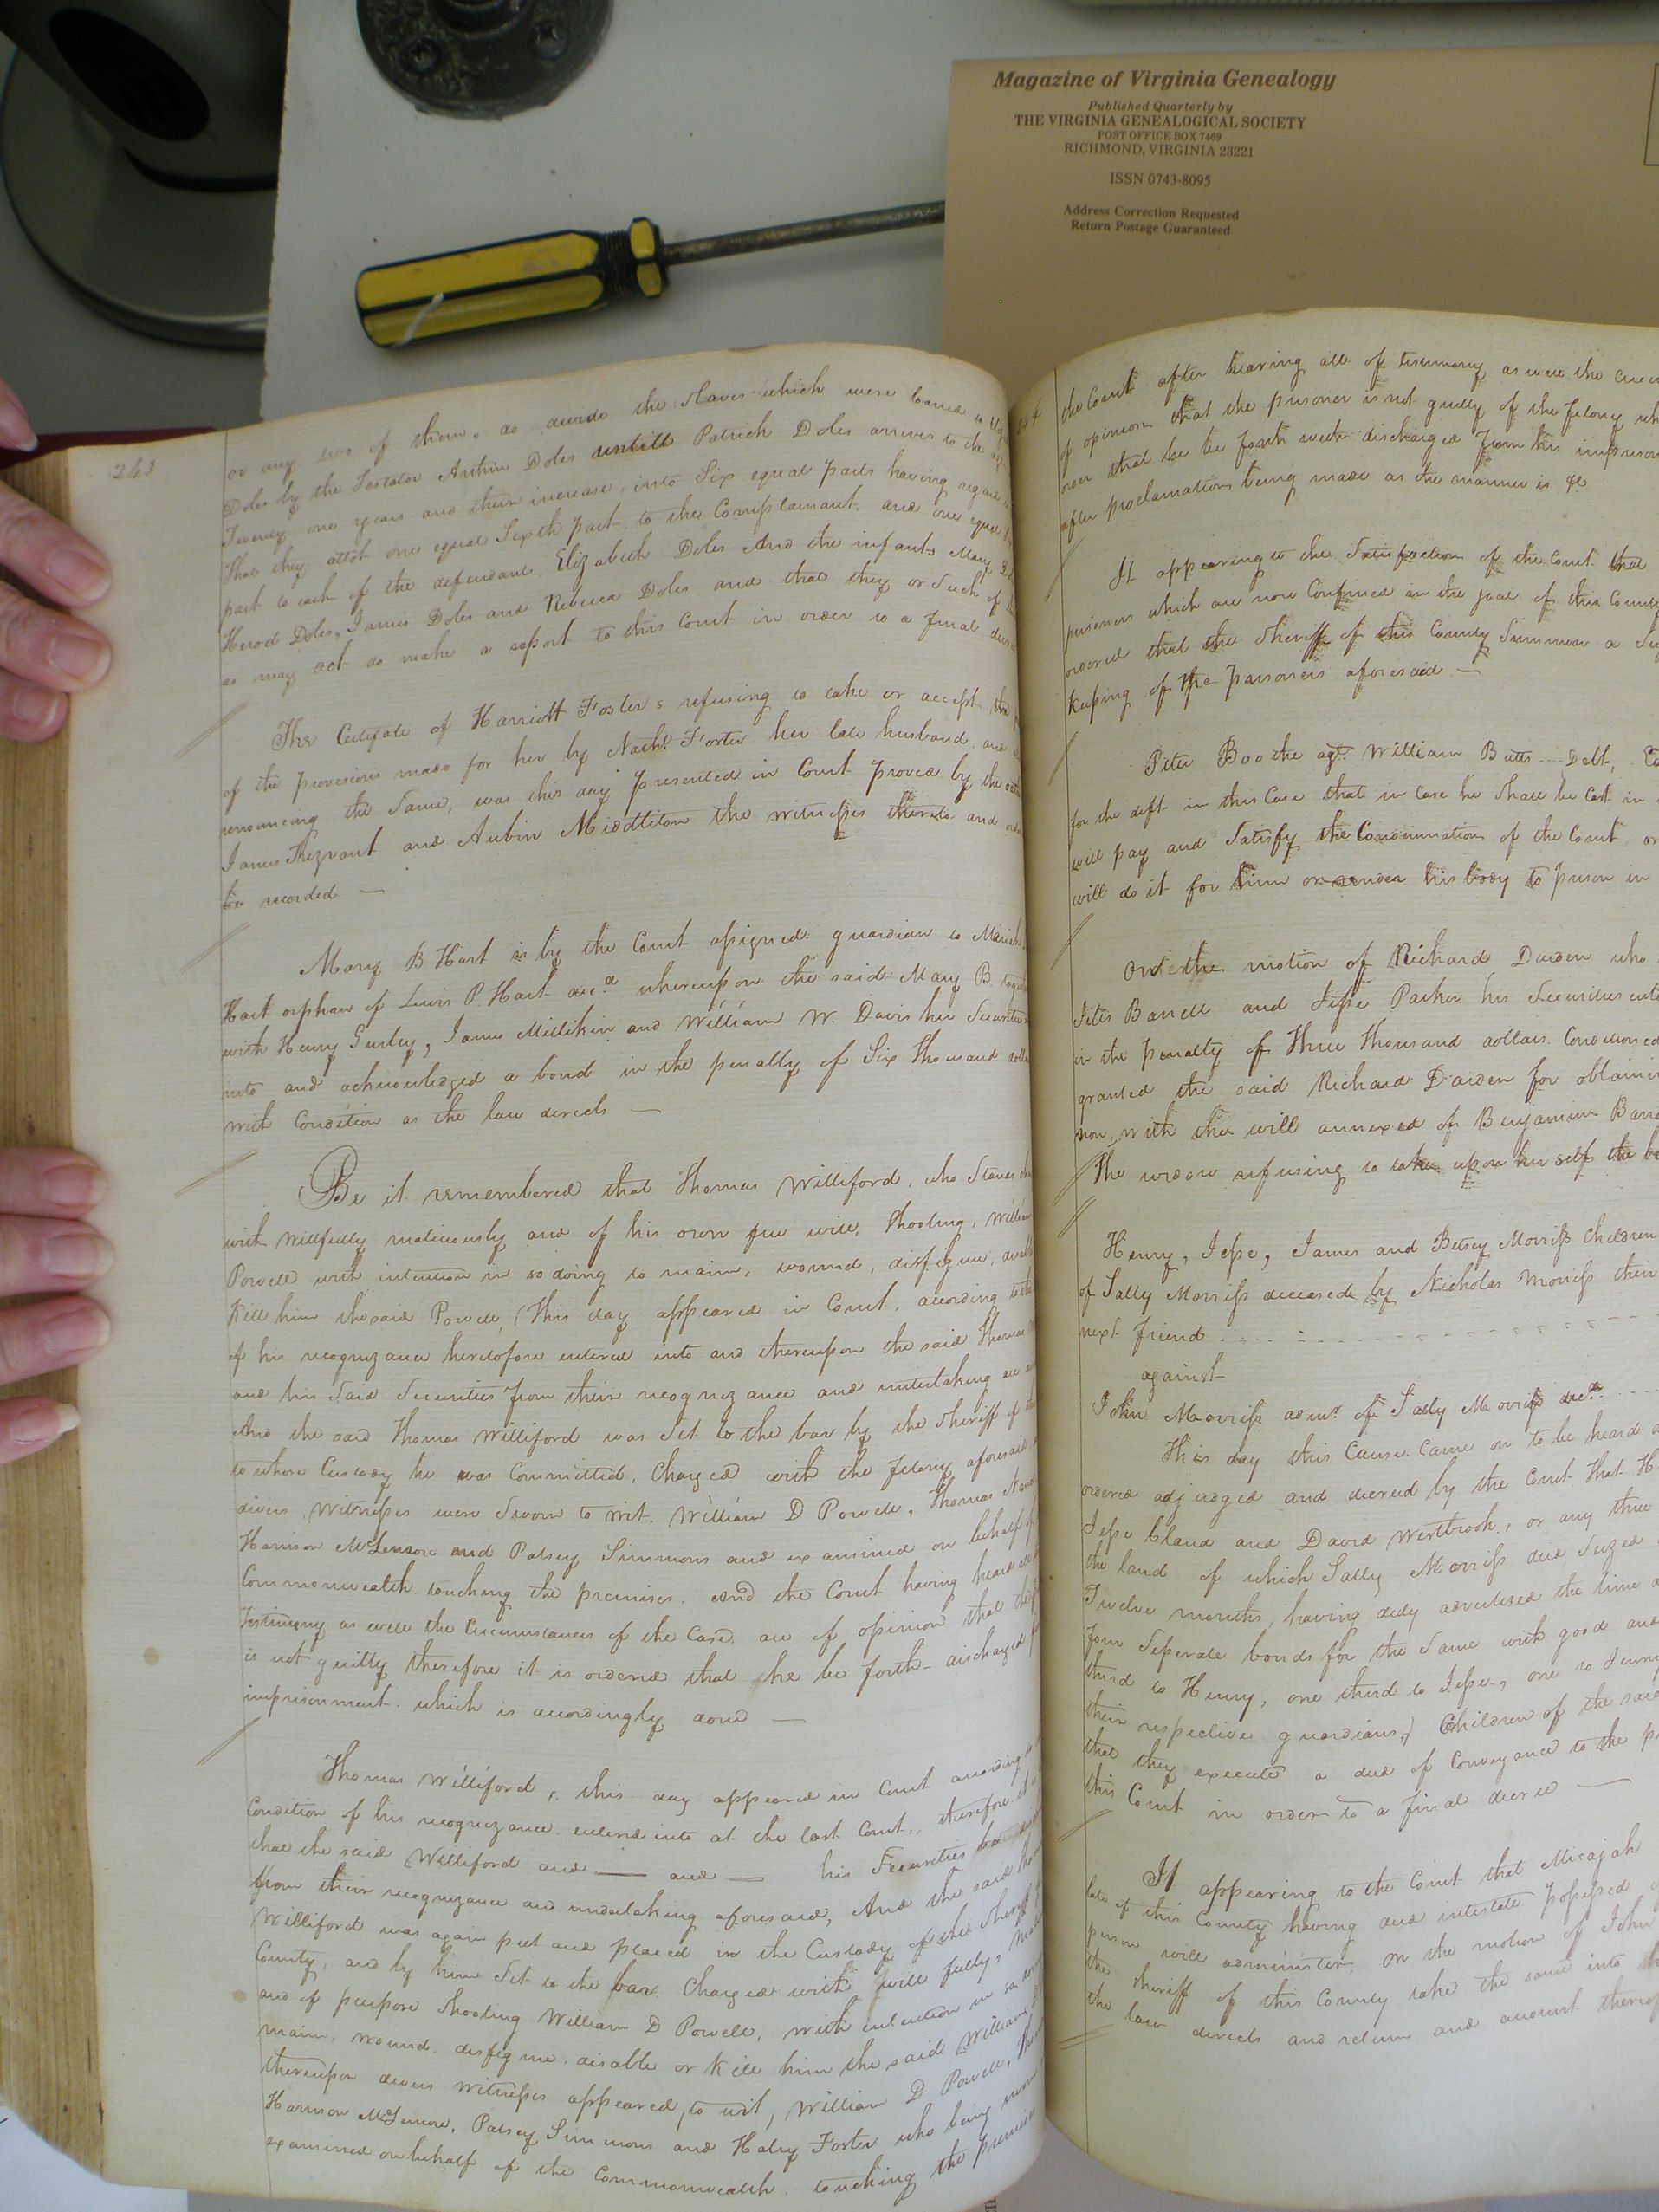 Magazine of Virginia Genealogy
Published Quarterly by
THE VIRGINIA GENEALOGICAL SOCIETY
POST OFFICE BOX 7469
RICHMOND, VIRGINIA 23221
ISSN 0743-8095
Address Correction Requested
Return Postage Guaranteed
263
or any two of them, do divide the Slaves which were loaned to
Doles by the Testator Arthur Doles untill Patrick Doles arrives to the age
Twenty one years and their increase, into Six equal parts having regard
That they allot one equal Sixth part to the Complainant. and one equal
part to each of the defendants Elizabeth Doles And the infants Mary
Herod Doles, James Doles and Rebecca Doles and that they or Such of
as may act do make a report to this Court in order to a final
The Certificate of Harriott Foster's refusing to take or accept the
of the provisions made for her by Nathl. Foster her late husband, and
renouncing the Same, was this day presented in Court proved by the oaths
James Trezvant and Aubin Middleton the witnesses thereto and
be recorded —
Mary B Hart is by the Court assigned guardian to
Hart orphan of Lewis P. Hart decd. whereupon the said Mary B.
with Henry Gurley, James Millikin and William W. Davis her Securities
into and acknowledged a bond in the penalty of Six Thousand
with Condition as the law directs —
Be it remembered that Thomas Williford, who Stands
with willfully maliciously and of his own free will, Shooting, William
Powell with intention in so doing to maim, wound, disfigure,
Kill him the said Powell, This day appeared in Court, according to the
of his recognizance heretofore entered into and thereupon the said Thomas
and his Said Securities from their recognizance and undertaking are
And the said Thomas Williford was Set to the bar by the Sheriff of
to whose Custody he was Committed, Charged with the felony aforesaid
divers Witnesses were Sworn to wit. William D Powell, Thomas
Harrison McLemore and Patsey Simmons and examined on behalf of
Commonwealth touching the premises. And the Court having heard
Testimony as well the Circumstances of the Case, are of opinion that the
is not guilty therefore it is ordered that he be forth- discharged
imprisonment. which is accordingly done —
Thomas Williford, this day appeared in Court according
Condition of his recognizance entered into at the last Court, therefore
that the said Williford and — and — his Securities
from their recognizance and undertaking aforesaid, And the said
Williford was again put and placed in the Custody of the Sheriff
County, and by him Set to the bar. Charged with willfully,
and of purpose Shooting William D Powell, with intention in so
maim, wound, disfigure, disable or Kill him the said William
thereupon divers witnesses appeared, to wit, William D Powell,
Harrison McLemore, Patsey Simmons and Haley Foster who being
examined on behalf of the Commonwealth, touching the premises
the Court after hearing all of testimony as well the
of opinion that the prisoner is not guilty of the felony
order that he be forth with discharged from his
after proclamation being made as the manner is &c
It appearing to the Satisfaction of the Court that
prisoners which are now Confined in the jail of this County
ordered that the Sheriff of this County Summon a
keeping of the prisoners aforesaid —
Peter Boothe agt. William Butts .... Debt,
for the deft in this Case that in Case he Shall be Cast in
will pay and Satisfy the Condemnation of the Court, or
will do it for him or render his body to prison in
On the motion of Richard Darden who
Jiles Barrett and Jesse Parker his Securities
in the penalty of Three Thousand dollars. Conditioned
granted the said Richard Darden for
non, with the will annexed of Benjamin
The widow refusing to take upon her self the
Henry, Jesse, James and Betsey Morriss Children
of Sally Morriss deceased by Nicholas Morriss their
next friend
against
John Morriss admr. of Sally Morriss decd.
This day this Cause Came on to be heard
ordered adjudged and decreed by the Court That
Jesse Cland and David Westbrook, or any three
the land of which Sally Morriss died Seized
Twelve months, having duly advertised the time
form Seperate bonds for the Same with good and
third to Henry, one third to Jesse, one to
their respective guardians,) Children of the said
that they execute a deed of Conveyance to the
this Court in order to a final decree —
It appearing to the Court that Micajah
late of this County having died intestate possessed
person will administer, On the motion of John
the Sheriff of this County take the same into
the law directs and return and account thereof